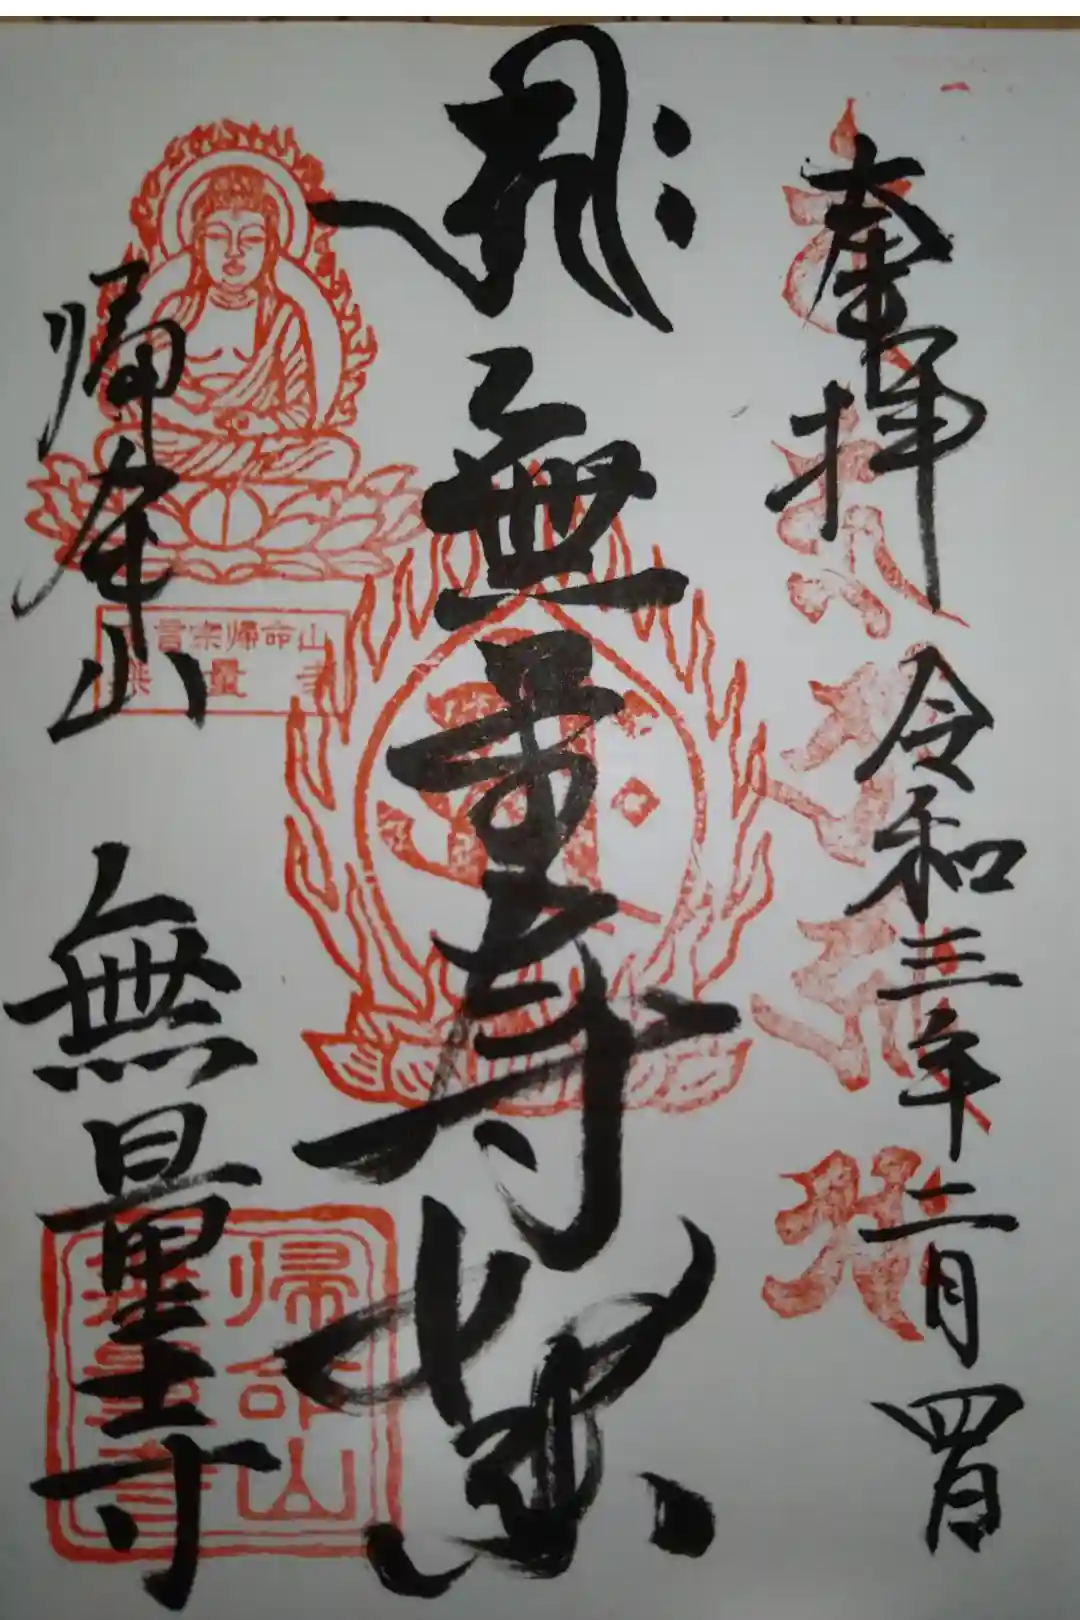 奉拝 令和三年二月四日
無量寿楽
帰命山 無量寺
言宗帰命山
量寺
帰命山
無量寺